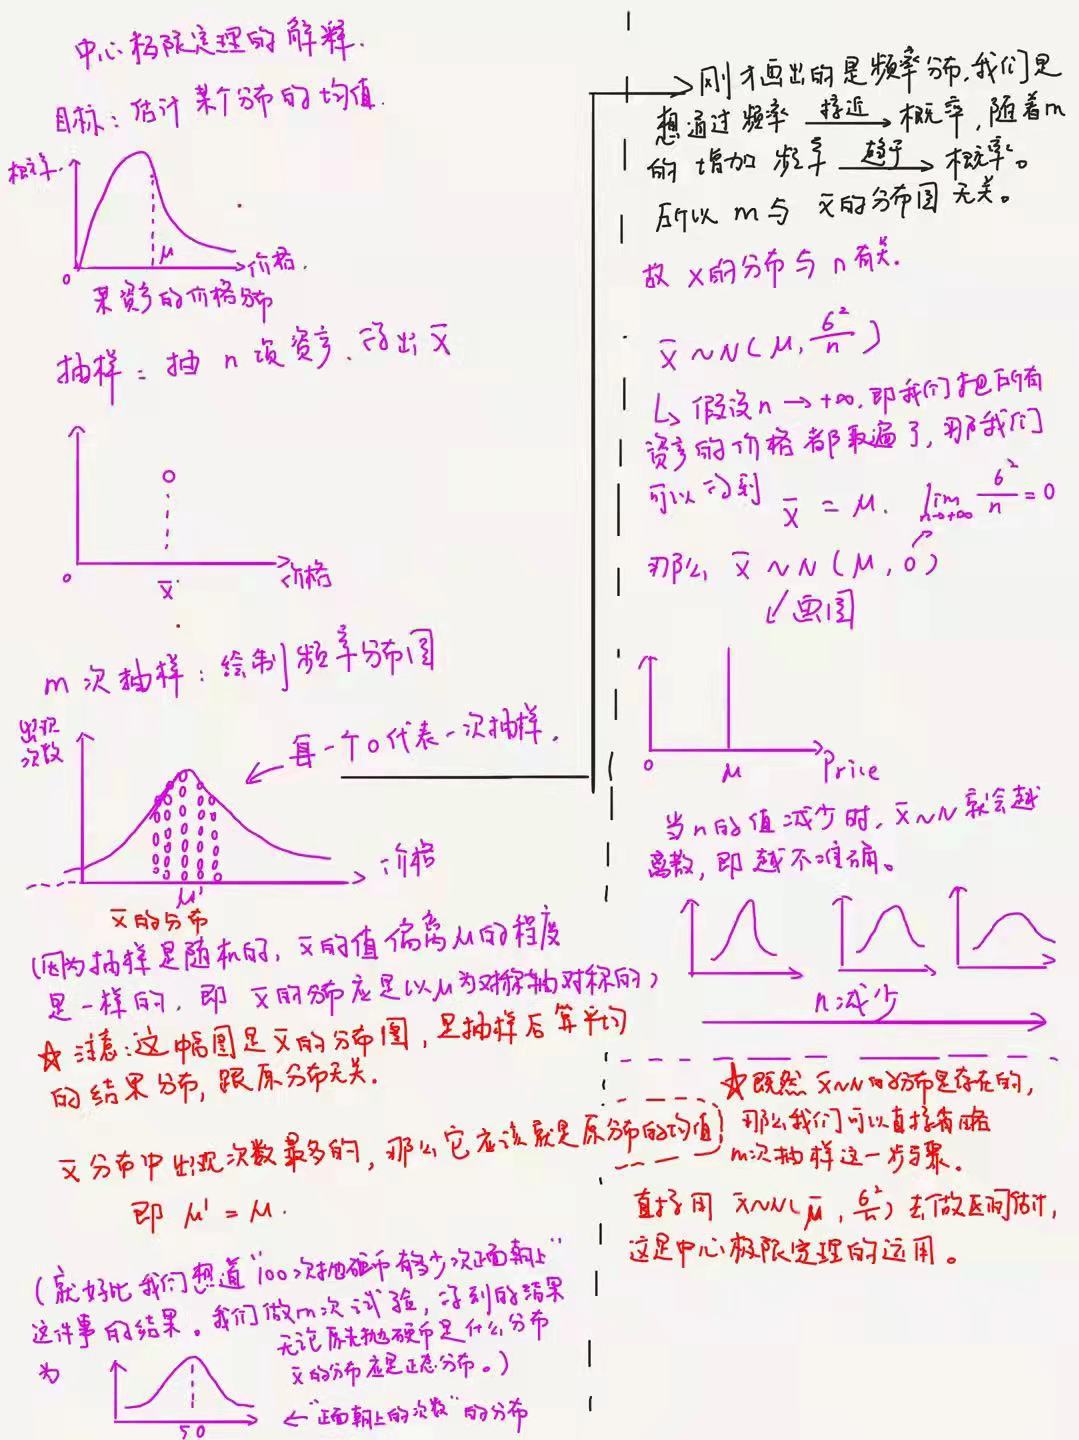 中心极限定理的解释.
目标：估计某个分布的均值.
概率
μ
0
价格.
某资产的价格分布
抽样：抽 n 项资产、得出 x̄
0
x̄
价格
m 次抽样：绘制频率分布图
出现
次数
每一个o代表一次抽样.
价格
μ'
x̄的分布
(因为抽样是随机的, x̄的值偏离μ的程度
是一样的. 即 x̄的分布应是以μ为对称轴对称的)
☆ 注意:这幅图是x̄的分布图, 是抽样后算平均
的结果分布, 跟原分布无关.
x̄分布中出现次数最多的, 那么它应该就是原分布的均值!
即 μ' = μ.
(就好比我们想道"100次抛硬币有多少次正面朝上"
这件事的结果。我们做m次试验, 得到的结果
为
无论原先抛硬币是什么分布
x̄的分布应是正态分布。)
50
← "正面朝上的次数"的分布
刚才画出的是频率分布.我们是
想通过频率 接近→ 概率, 随着m
的增加 频率 趋于→ 概率。
所以 m 与 x̄的分布图无关。
故 x的分布与 n 有关.
x̄ ~ N(μ, 6²/n)
↳ 假设n → +∞. 即我们把所有
资产的价格都取遍了, 那我们
可以得到 x̄ = μ. lim n→+∞ 6²/n = 0
那么 x̄ ~ N (μ, 0)
↙ 画图
0
μ
Price
当n的值减少时, x̄~N 就会越
离散, 即越不准确。
n减少
☆ 既然 x̄~N的分布是存在的,
那么我们可以直接省略
m次抽样这一步骤。
直接用 x̄~N(μ, 6²/n) 去做区间估计,
这是中心极限定理的运用。